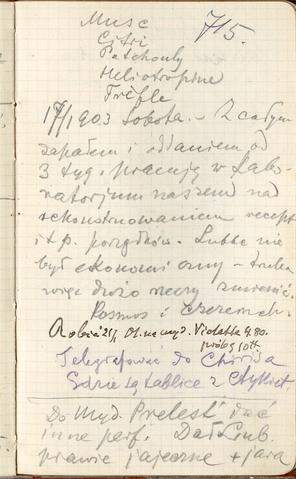 Musc 715.
Citri
Patchouly
Heliotropine
Trèfle
17/I 1903 Sobota. - Z całym
zapałem i oddaniem od
3 tyg. pracuję w Labo-
ratorjum naszem nad
skonstruowaniem recept
i t.p. porządków. Lubbe nie
był ekonomiczny - trzeba
więc dużo rzeczy zmienić.
Kosmos i
Robić 21/I 01. na myd. Violette 4.80.
Telegrafować do Chirisa
Gdzie są tablice z etykiet
Do Myd. Prelest' dać
inne perf. Dał Lub.
prawie jajeczne + jara